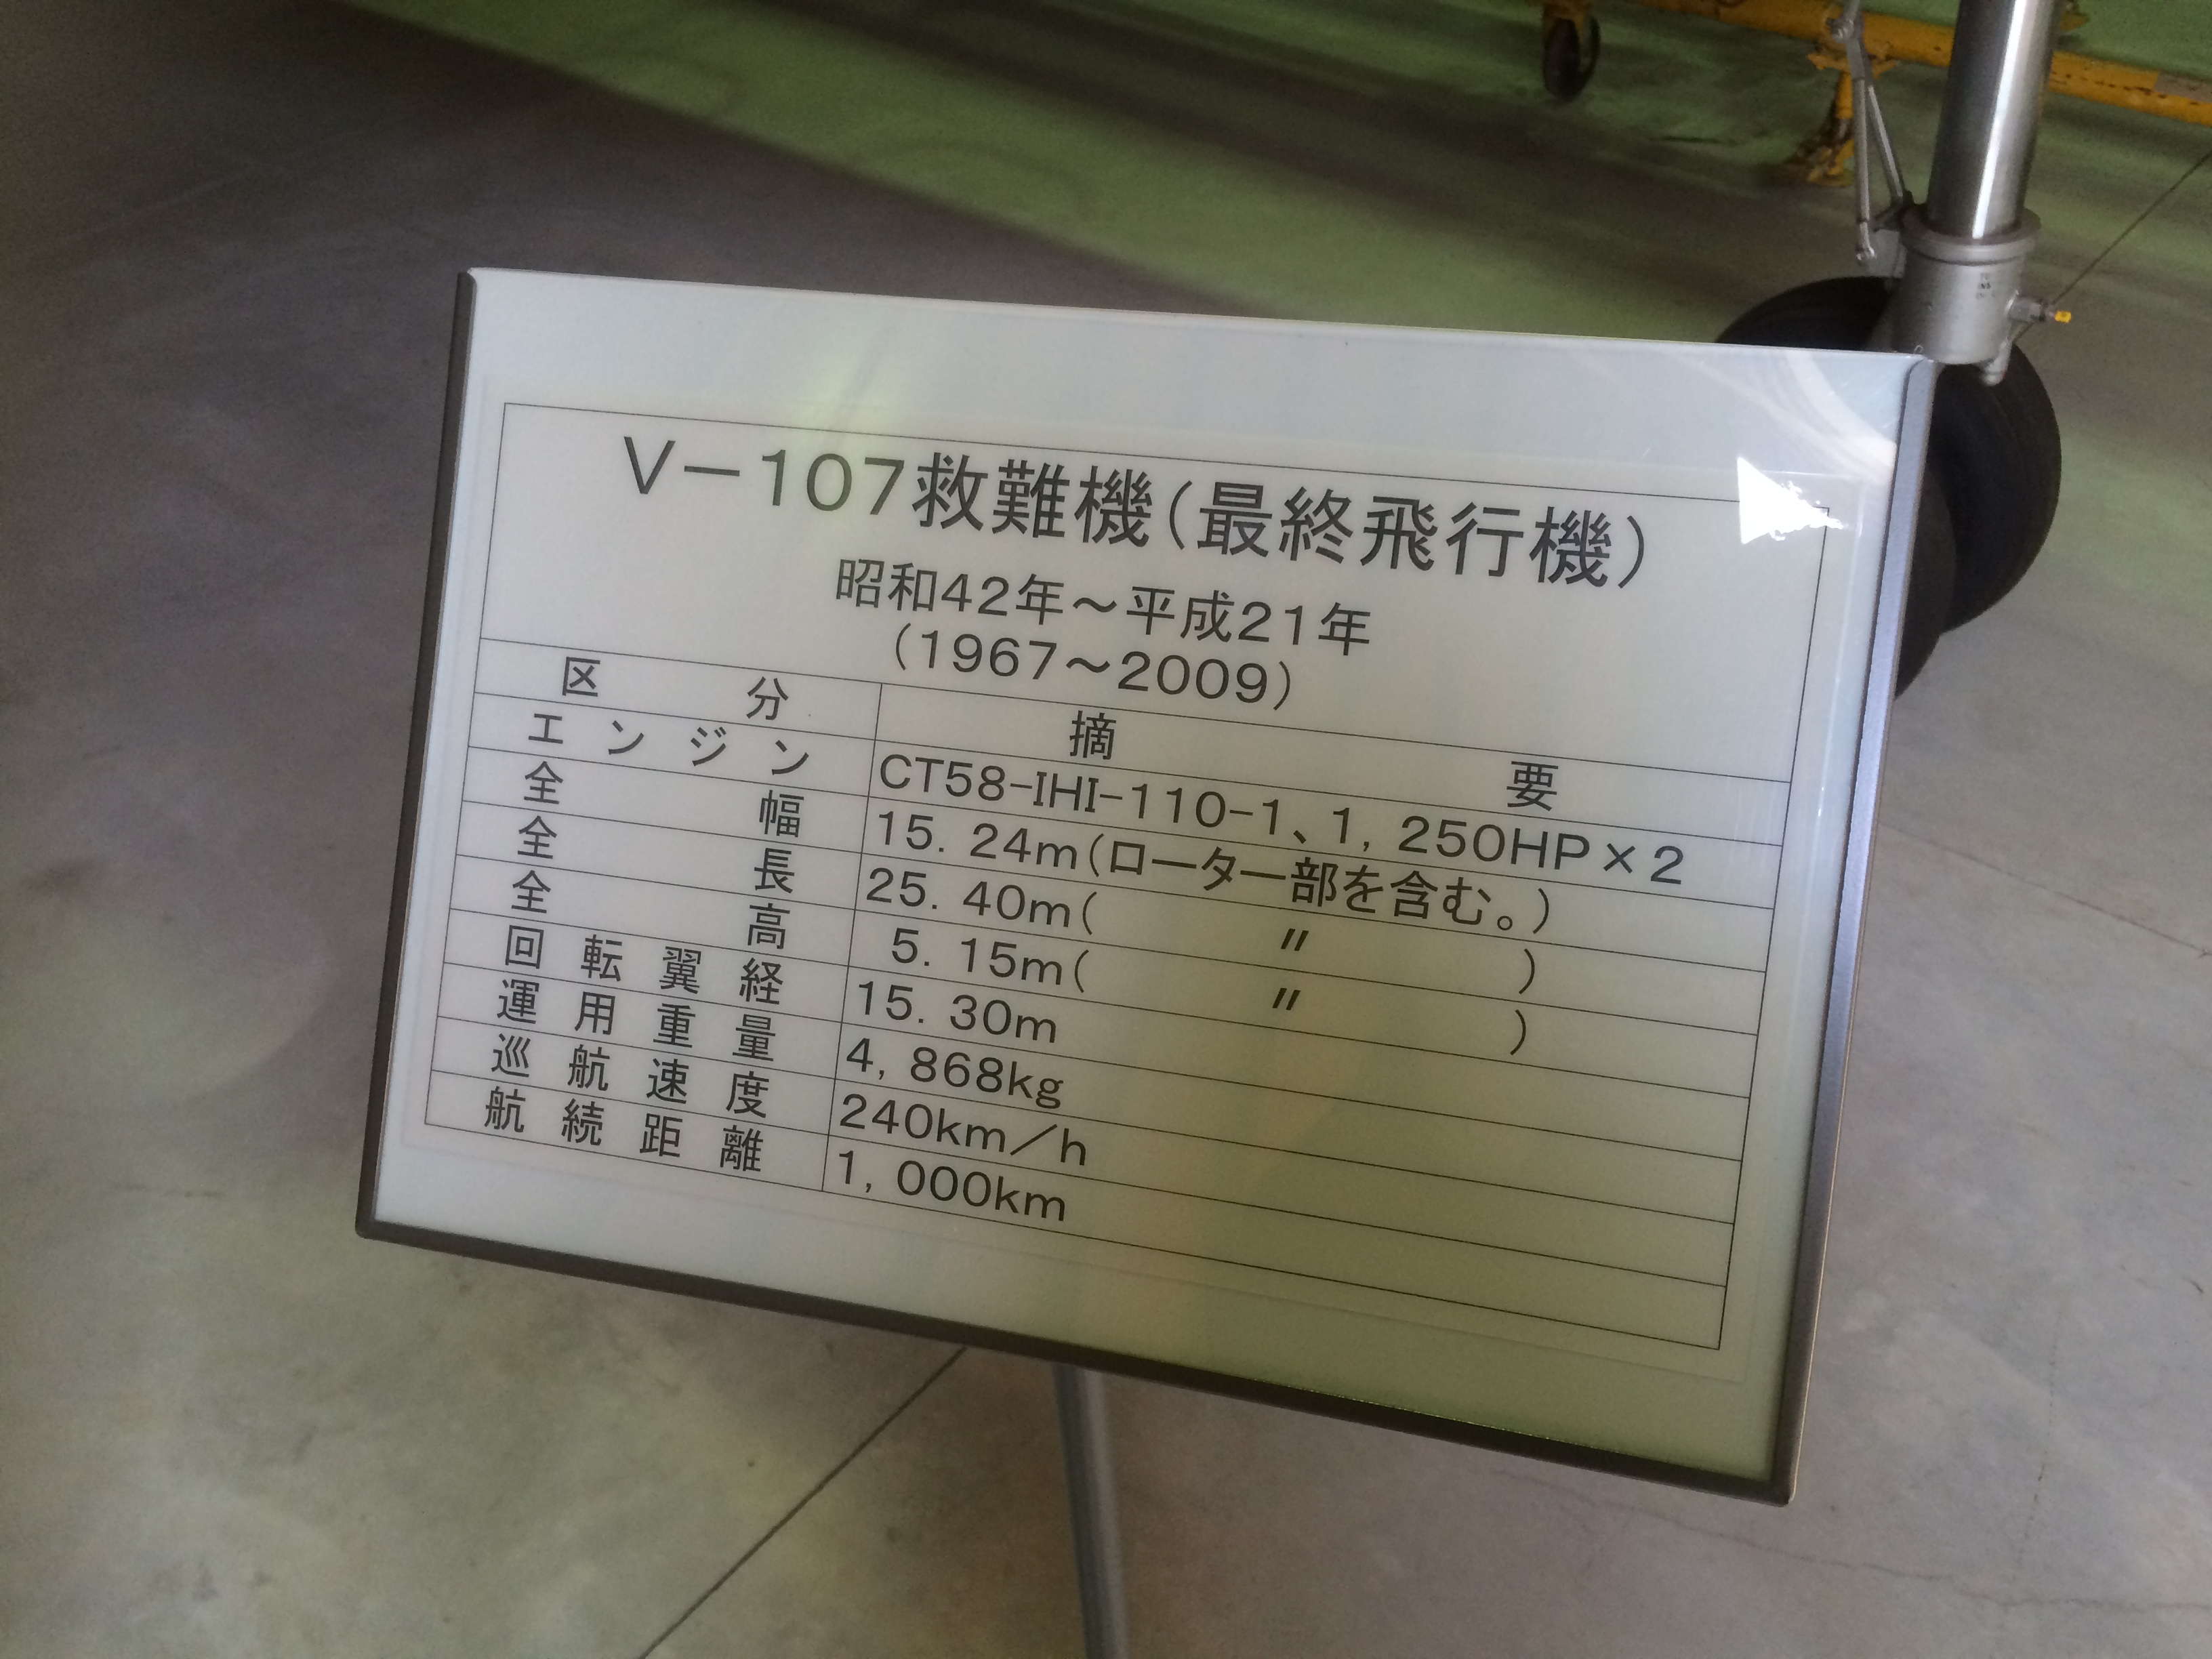 V－107救難機（最終飛行機）
昭和42年～平成21年
（1967～2009）
区分 摘要
エンジン CT58-IHI-110-1、1，250HP×2
全幅 15．24m（ローター部を含む。）
全長 25．40m（ 〃 ）
全高 5．15m（ 〃 ）
回転翼経 15．30m
運用重量 4，868kg
巡航速度 240km／h
航続距離 1，000km